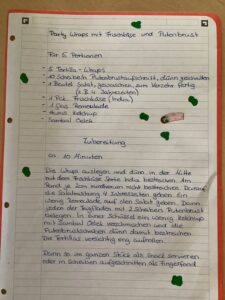 Party Wraps mit Frischkäse und Putenbrust
Für 5 Portionen
- 5 Tortilla - Wraps
- 10 Scheiben Putenbrustaufschnitt, dünn geschnitten
- 1 Beutel Salat, gewaschen, zum Verzehr fertig
(z.B. 4 Jahreszeiten)
- 1 Pck. Frischkäse (India)
- 1 Glas Remoulade
- etwas Ketchup
- Sambal Oelek
Zubereitung
ca. 10 Minuten
Die Wraps auslegen und dünn in der Mitte
mit dem Frischkäse Sorte India bestreichen. Am
Rand je 2cm rundherum nicht bestreichen. Darauf
die Salatmischung 4 Jahreszeiten geben. Ein
wenig Remoulade auf den Salat geben. Dann
jeden der Teigfladen mit 2 Scheiben Putenbrust
belegen. In einer Schüssel ein wenig Ketchup
mit Sambal Oelek vermischen und die
Putenbrustscheiben dünn damit bestreichen.
Die Tortillas vorsichtig eng aufrollen.
Dann so im ganzen Stück als Snack servieren
oder in Scheiben aufgeschnitten als Fingerfood.